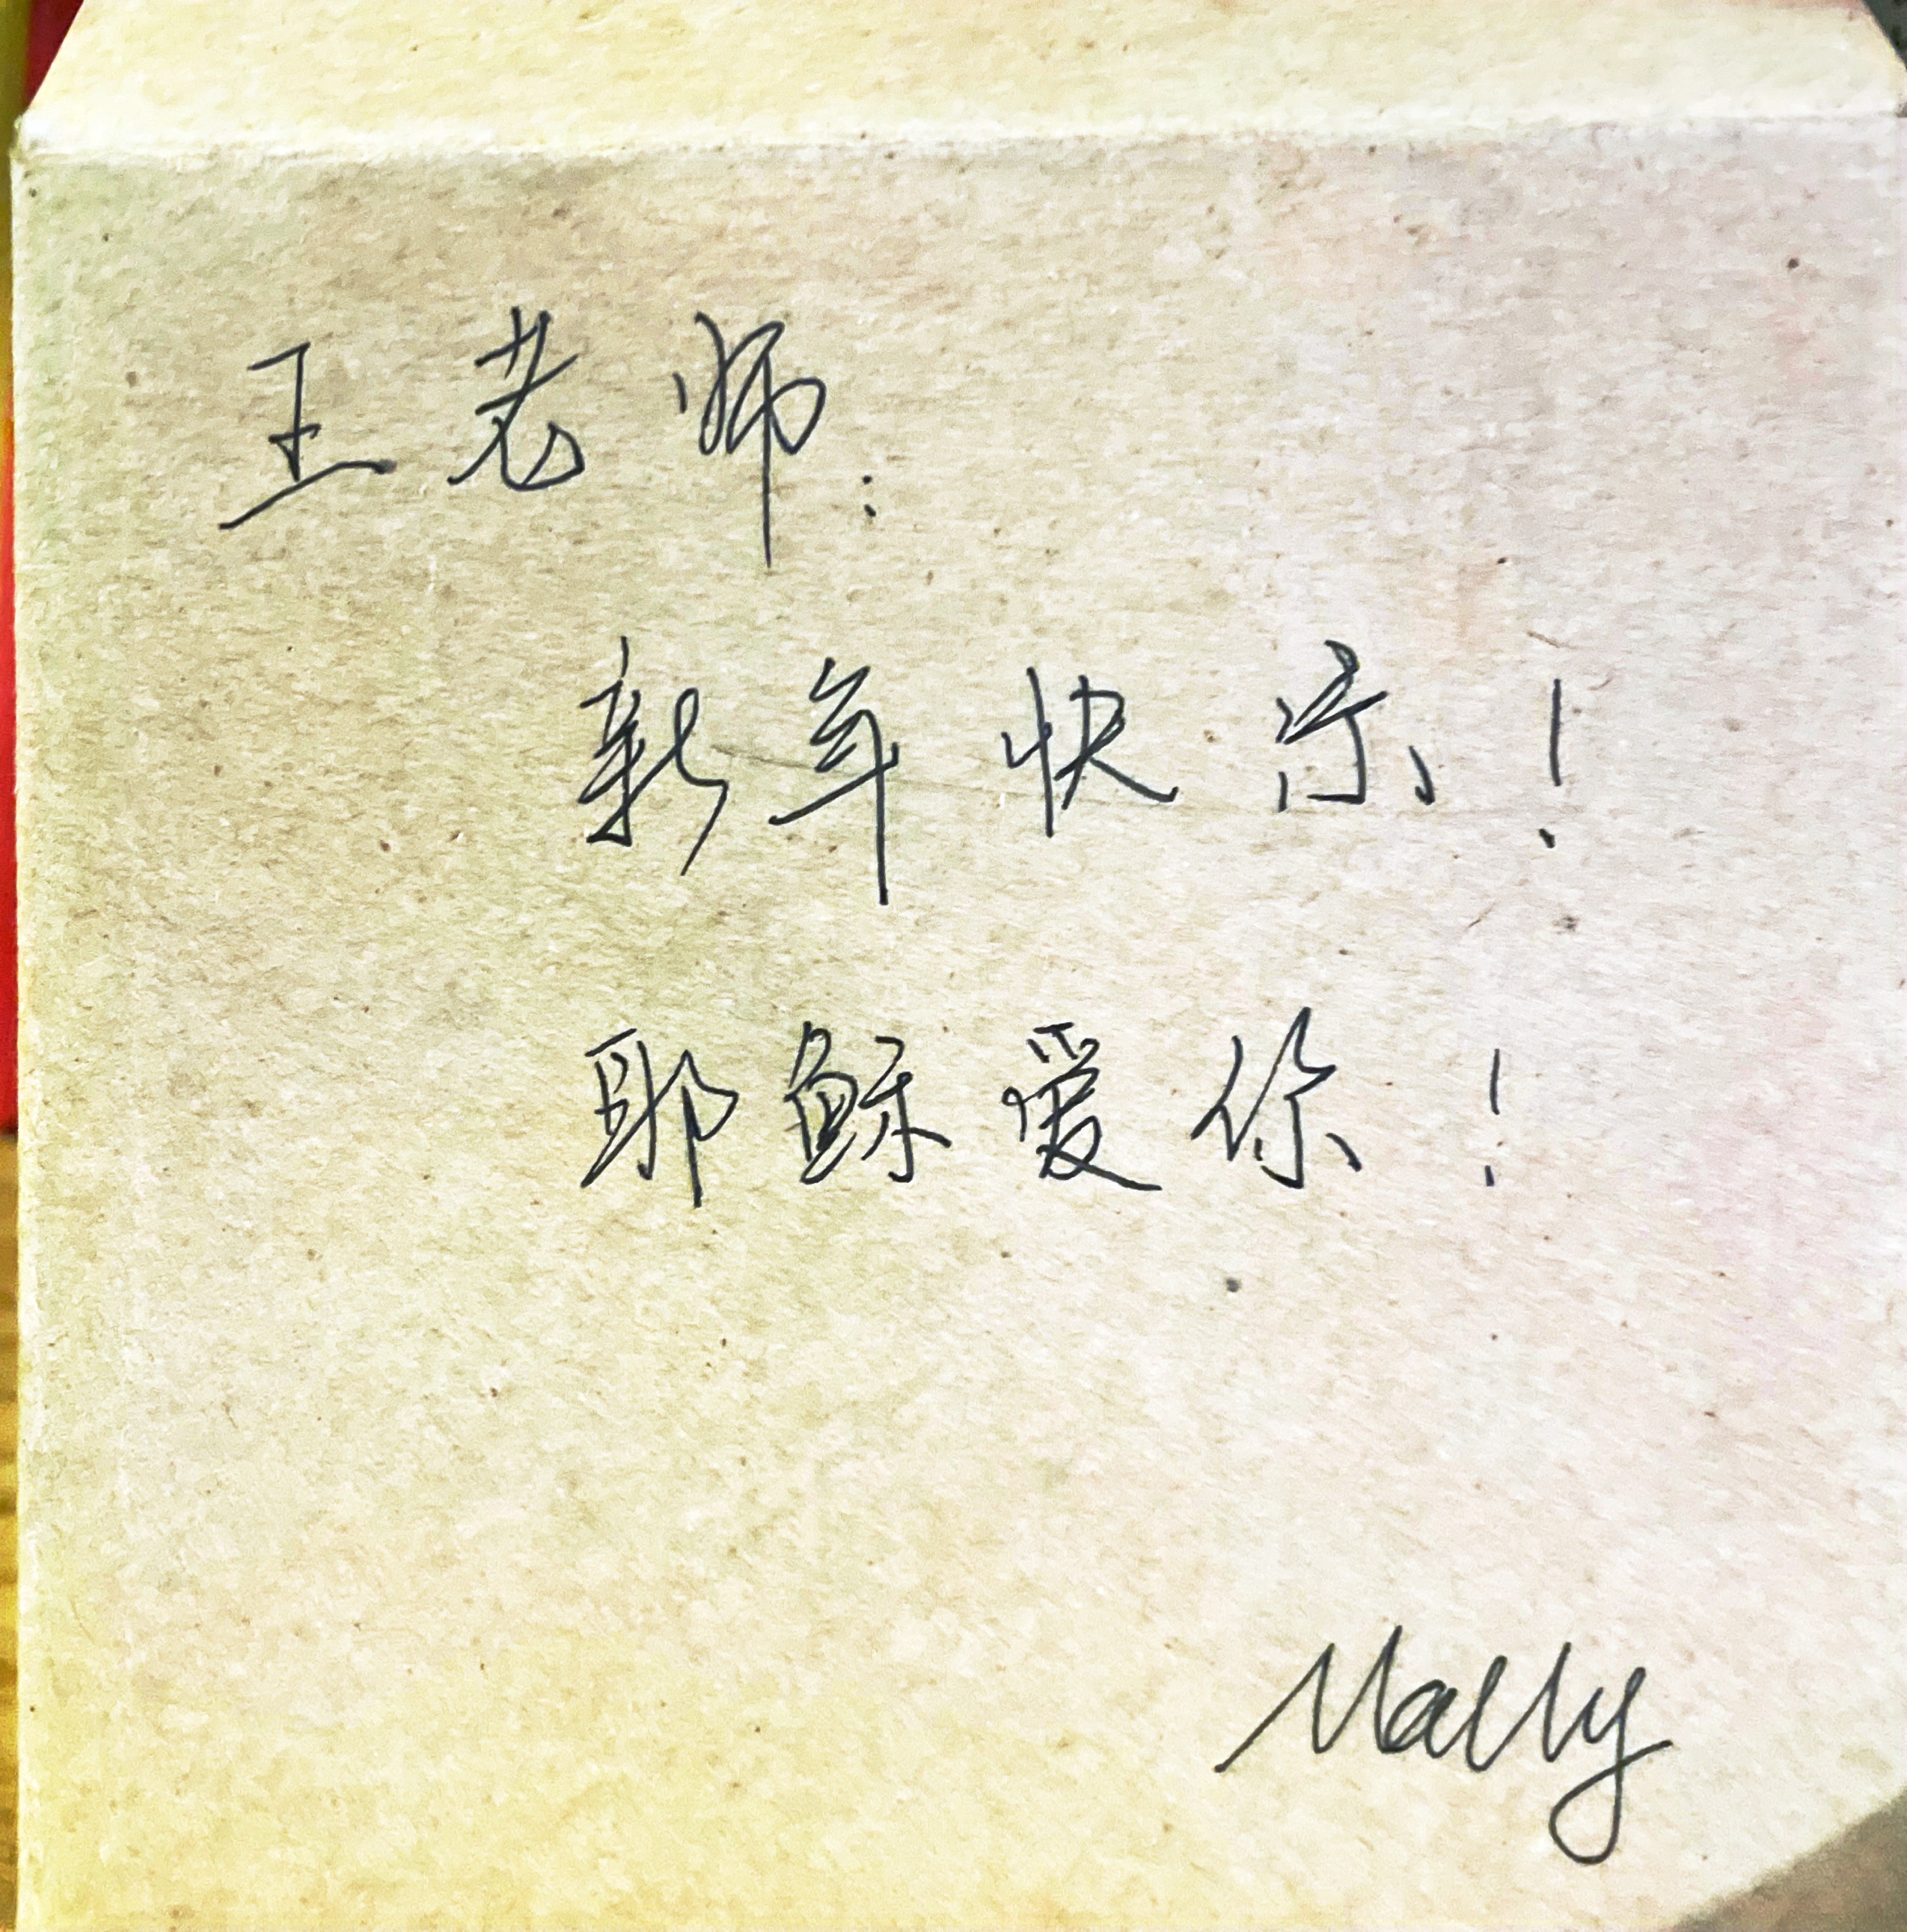 王老师：
新年快乐！
耶稣爱你！
Mally